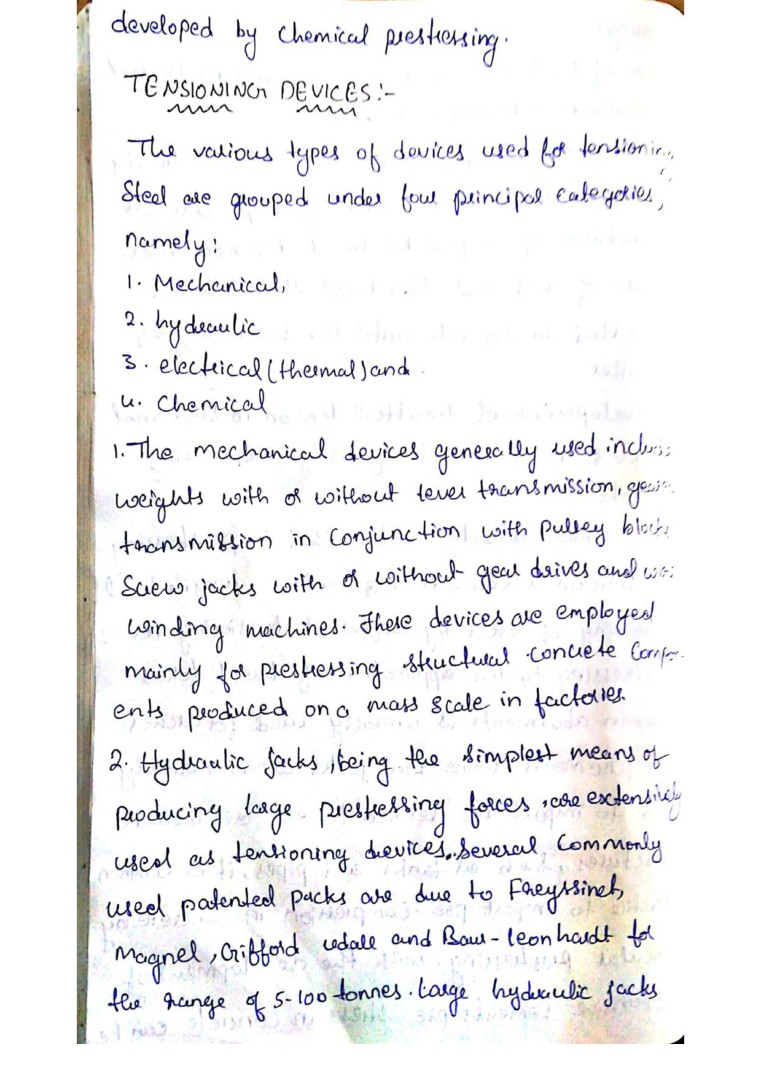 developed by Chemical prestressing.
TENSIONING DEVICES:-
The various types of devices used for tensionin
Steel are grouped under four principal categories,
namely:
1. Mechanical,
2. hydraulic
3. electrical (thermal) and.
4. Chemical
1. The mechanical devices generally used includ
weights with or without lever transmission, gear
transmission in conjunction with pulley block
Screw jacks with or without gear drives and
winding machines. These devices are employed
mainly for prestressing structural concrete Comp
ents produced on a mass scale in factories.
2. Hydraulic jacks, being the simplest means of
producing large prestressing forces, are extensively
used as tensioning devices. Several Commonly
used patented packs are due to Freyssinet,
Magnel, Gifford udall and Baur-leonhardt for
the range of 5-100 tonnes. Large hydraulic jacks